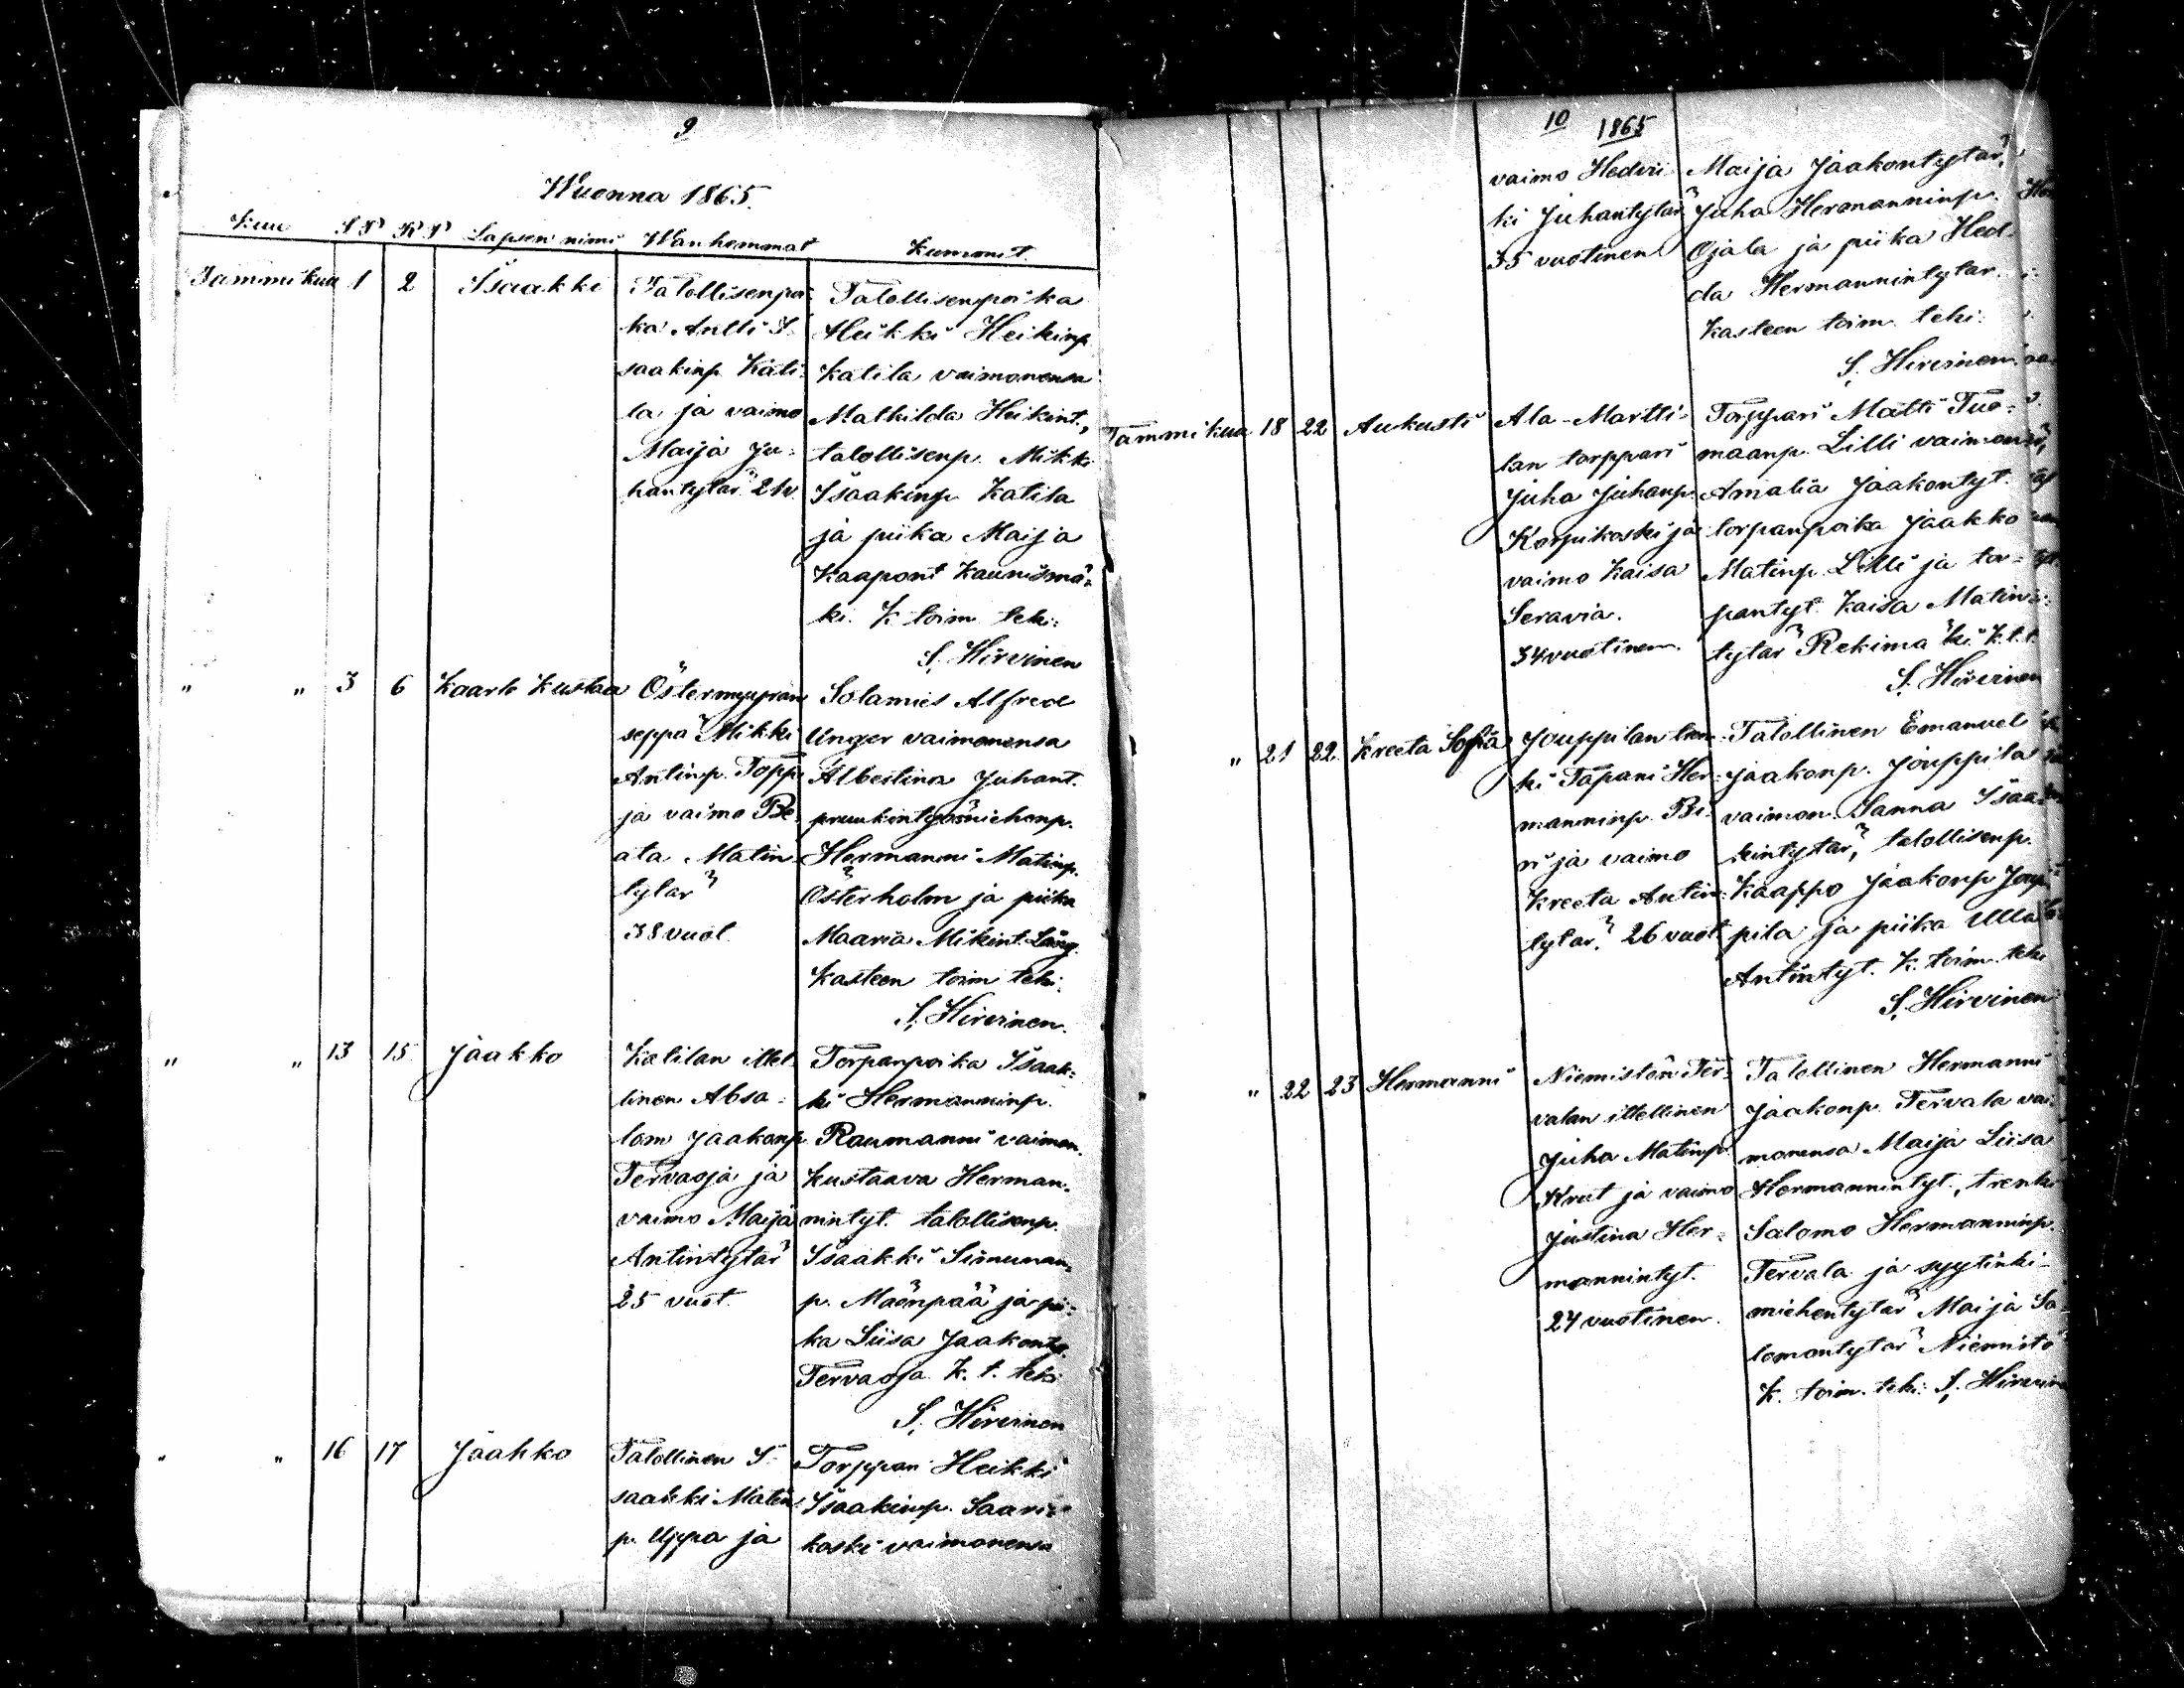 9
Wuonna 1865.
Kuu SP KP Lapsen nimi Wanhemmat Kummit.
Tammikuu 1 2 Isaakki
Talollisenpoi-
ka Antti I-
saakinp. Kati-
la ja vaimo
Maija Ju-
hantytär 21v.
Talollisenpoika
Heikki Heikinp.
Katila vaimonensa
Mathilda Heikint.,
talollisenp. Mikki
Isaakinp. Katila
ja piika Maija
Kaapont Kaunismä-
ki. K. toim. teki:
S. Hirvinen
" " 3 6 Kaarle Kustaa
Östermyyran
seppä Mikki
Antinp. Topp
ja vaimo Be-
ata Matin-
tytär
38 vuot.
Solamies Alfred
Unger vaimonensa
Albertina Juhant.
pruukintyömiehenp.
Hermanni Matinp.
Österholm ja piika
Maaria Mikint. Lång.
Kasteen toim teki:
S. Hirvinen.
" " 13 15 Jaakko
Katilan itel-
linen Absa-
lom Jaakonp.
Tervaoja ja
vaimo Maija
Antintytär
25 vuot.
Torpanpoika Isaak-
ki Hermanninp.
Raumanni vaimon.
Kustaava Herman-
nintyt. talollisenp.
Isaakki Simunan-
p. Mäenpää ja pii-
ka Liisa Jaakontyt.
Tervaoja K. t. teki
S. Hirvinen
" " 16 17 Jaakko
Talollinen I-
saakki Matin-
p. Uppa ja
Torppari Heikki
Isaakinp. Saari-
koski vaimonensa
10 1865
vaimo Hedvi-
ki Juhantytär
35 vuotinen
Maija Jaakontytär,
Juha Hermanninp.
Ojala ja piika Hed-
da Hermannintytär.
Kasteen toim. teki:
S. Hirvinen
Tammikuu 18 22 Aukusti
Ala-Martti-
lan torppari
Juha Juhanp.
Korpikoski ja
vaimo Kaisa
Seravia.
34 vuotinen.
Torppari Matti Tuo-
maanp. Lilli vaimon.
Amalia Jaakontyt.
torpanpoika Jaakko
Matinp. Lilli ja tor-
pantyt. Kaisa Matin-
tytär Rekimäki. K. t. t.
S. Hirvinen
" 21 22 Kreeta Sofia
Jouppilan ren-
ki Tapani Her-
manninp. Bi-
ri ja vaimo
Kreeta Antin-
tytär. 26 vuot
Talollinen Emanuel
Jaakonp. Jouppila
vaimon. Sanna Isaa-
kintytär, talollisenp.
Kaappo Jaakonp Joup-
pila ja piika Ulla
Antintyt. K. toim. teki
S. Hirvinen
" 22 23 Hermanni
Niemistön Ter-
valan itellinen
Juha Matinp.
Krut ja vaimo
Justina Her-
mannintyt.
24 vuotinen.
Talollinen Hermanni
Jaakonp. Tervala vai-
monensa Maija Liisa
Hermannintyt., trenki
Salomo Hermanninp.
Tervala ja syytinki-
miehentytär Maija Sa-
lomontytär Niemistö
K. toim. teki: S. Hirvinen